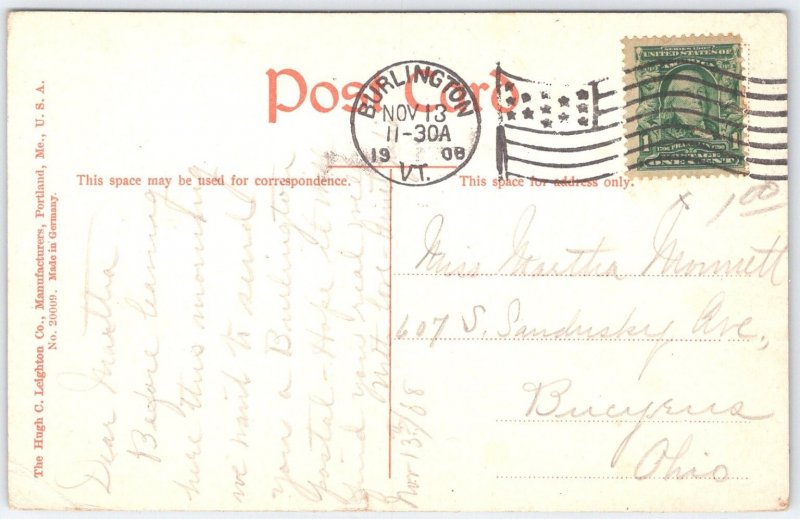 Post Card
BURLINGTON
NOV 13
11-30A
1908
VT.
SERIES 1902
UNITED STATES OF
AMERICA
FRANKLIN
POSTAGE
ONE CENT
This space may be used for correspondence.
This space for address only.
x 1 00
Miss Martha Monnett
607 S. Sandusky Ave,
Bucyrus
Ohio
The Hugh C. Leighton Co., Manufacturers, Portland, Me., U. S. A.
No. 20009. Made in Germany.
Dear Martha
Before leaving
here this morning
we want to send
you a Burlington
postal - Hope to
find you real
With love
Nov 13th/08